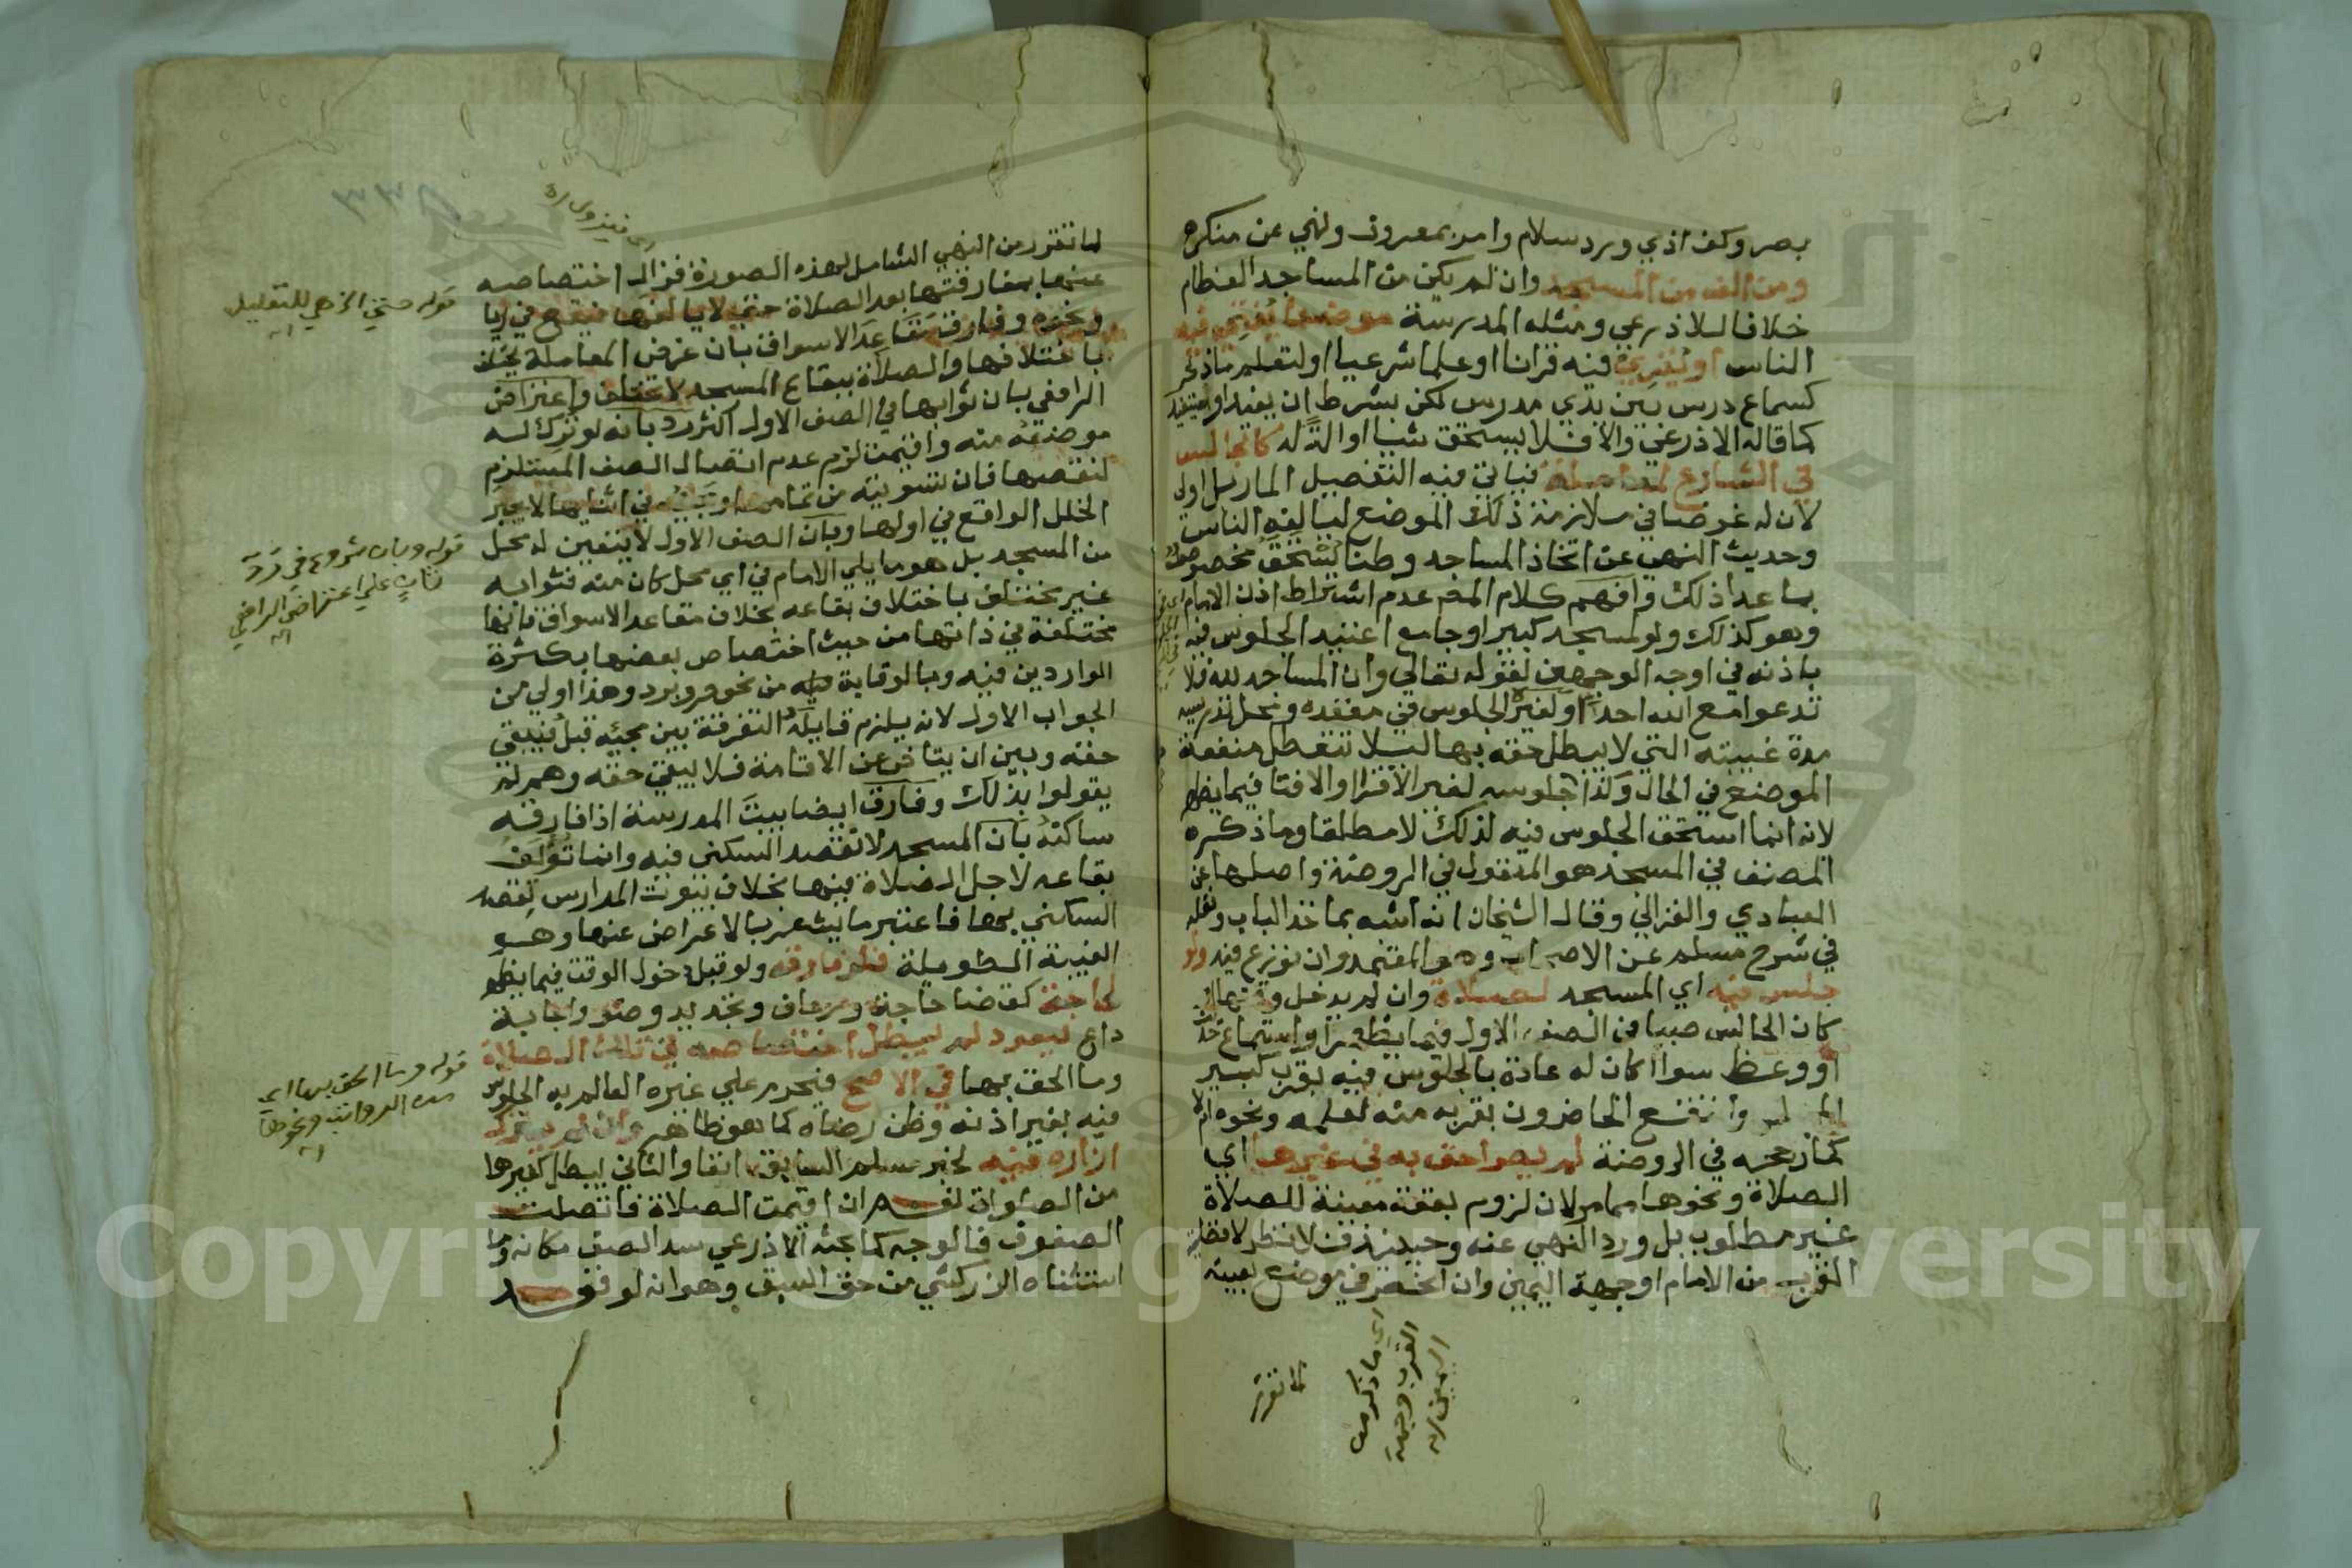 بصر وكف اذي ورد سلام وامر بمعروف ونهي عن منكر
ومن الف من المسجد وان لم يكن من المساجد العظام
خلافا للاذرعي ومثله المدرسة موضعا يفتي فيه
الناس او يقري فيه قرانا او علما شرعيا او لتعلم ما ذكر
كسماع درس بين يدي مدرس لكن بشرط ان يفيد او يستفيد
كما قاله الاذرعي والا فلا يستحق شيا او الة له كالجالس
في الشارع لمعاملة فياتي فيه التفصيل المار بل اولى
لان له غرضا في ملازمة ذلك الموضع ليالفه الناس
وحديث النهي عن اتخاذ المساجد وطنا يستحق مخصوص
بما عدا ذلك وافهم كلام المص عدم اشتراط اذن الامام
وهو كذلك ولو لمسجد كبير او جامع اعتيد الجلوس فيه
باذنه في اوجه الوجهين لقوله تعالي وان المساجد لله فلا
تدعوا مع الله احدا ولغيره الجلوس في مقعده ومحل تدريسه
مدة غيبته التي لا يبطل حقه بها ليلا تتعطل منفعة
الموضع في الحال وكذا جلوسه لغير الاقرا والافتا فيما يظهر
لانه انما استحق الجلوس فيه لذلك لا مطلقا وما ذكره
المصنف في المسجد هو المنقول في الروضة واصلها عن
العبادي والغزالي وقال الشيخان انه اشبه بماخذ الباب ونقله
في شرح مسلم عن الاصحاب وهو المعتمد وان نوزع فيه ولو
جلس فيه اي المسجد لصلاة وان لم يدخل وقتها او
كان الجالس صبيا في الصف الاول فيما يظهر او استماع حديث
او وعظ سوا اكان له عادة بالجلوس فيه بقرب كبير
وانتفع الحاضرون بقربه منه لعلمه ونحوه ام لا
كما رجحه في الروضة لم يصر احق به في غيرها اي
الصلاة ونحوها مما مر لان لزوم بقعة معينة للصلاة
غير مطلوب بل ورد النهي عنه وحينئذ فلا نظر لافضلية
القرب من الامام او جهة اليمين وان انحصر في موضع بعينه
اي ما ذكر من
القرب وجهة
اليمين اه
لما تقرر
لما تقرر من النهي الشامل لهذه الصورة فزال اختصاصه
عنها بمفارقتها بعد الصلاة حتي لا يالفها فيقع في ريا
ونحوه وفارق مقاعد الاسواق بان غرض المعاملة يختلف
باختلافها والصلاة ببقاع المسجد لا تختلف واعتراض
الرافعي بان ثوابها في الصف الاول اكثر رد بانه لو ترك له
موضعه منه واقيمت لزم عدم اتصال الصف المستلزم
لنقصها فان تسويته من تمامها ومجيئه في اثنائها لا يجبر
الخلل الواقع في اولها وبان الصف الاول لا يتعين له محل
من المسجد بل هو ما يلي الامام في اي محل كان منه فثوابه
غير مختلف باختلاف بقاعه بخلاف مقاعد الاسواق فانها
مختلفة في ذاتها من حيث اختصاص بعضها بكثرة
الواردين فيه وبالوقاية فيه من نحو حر وبرد وهذا اولي من
الجواب الاول لانه يلزم قايله التفرقة بين مجيئه قبل فيبقي
حقه وبين ان يتاخر عن الاقامة فلا يبقي حقه وهم لم
يقولوا بذلك وفارق ايضا بيت المدرسة اذا فارقه
ساكنه بان المسجد لا تقصد السكني فيه وانما تؤلف
بقاعه لاجل الصلاة فيها بخلاف بيوت المدارس تقصد
السكني بها فاعتبر ما يشعر بالاعراض عنها وهو
الغيبة الطويلة فلو فارقه ولو قبل دخول الوقت فيما يظهر
لحاجة كقضا حاجة ورعاف وتجديد وضو واجابة
داع ليعود لم يبطل اختصاصه في تلك الصلاة
وما الحق بها في الاصح فيحرم علي غيره العالم به الجلوس
فيه بغير اذنه وظن رضاه كما هو ظاهر وان لم يترك
ازاره فيه لخبر مسلم السابق انفا والثاني يبطل كغيرها
من الصلوات نعم ان اقيمت الصلاة فاتصلت
الصفوف فالوجه كما بحثه الاذرعي سد الصف مكانه وما
استثناه الزركشي من حق السبق وهو انه لو قعد
قوله حتي الخ هي للتعليل
اه
قوله وبان شروع في رد
ثان علي اعتراض الرافعي
اه
قوله وما الحق بها اي
من الرواتب ونحوها
اه
Copyright © King Saud University